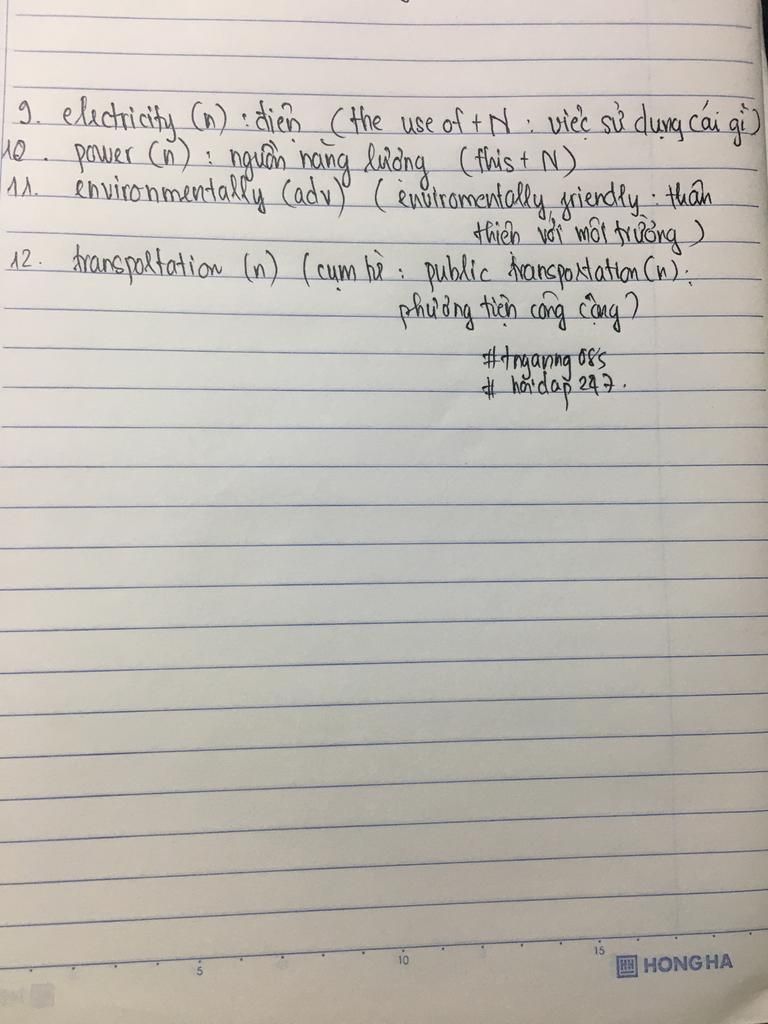 9. electricity (n) : điện (the use of + N : việc sử dụng cái gì)
10. power (n) : nguồn năng lượng (this + N)
11. environmentally (adv) (enviromentally friendly : thân
thiện với môi trường)
12. transportation (n) (cụm từ : public transportation (n) :
phương tiện công cộng)
# hỏi đáp 247.
5
10
15
HONG HA